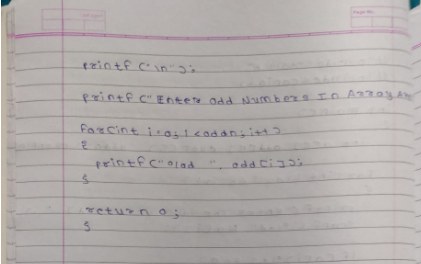 printf ("\n");
printf ("Enter odd Numbers In Array
for(int i=0; i<oddn; i++)
{
printf("%d ", odd[i]);
}
return 0;
}